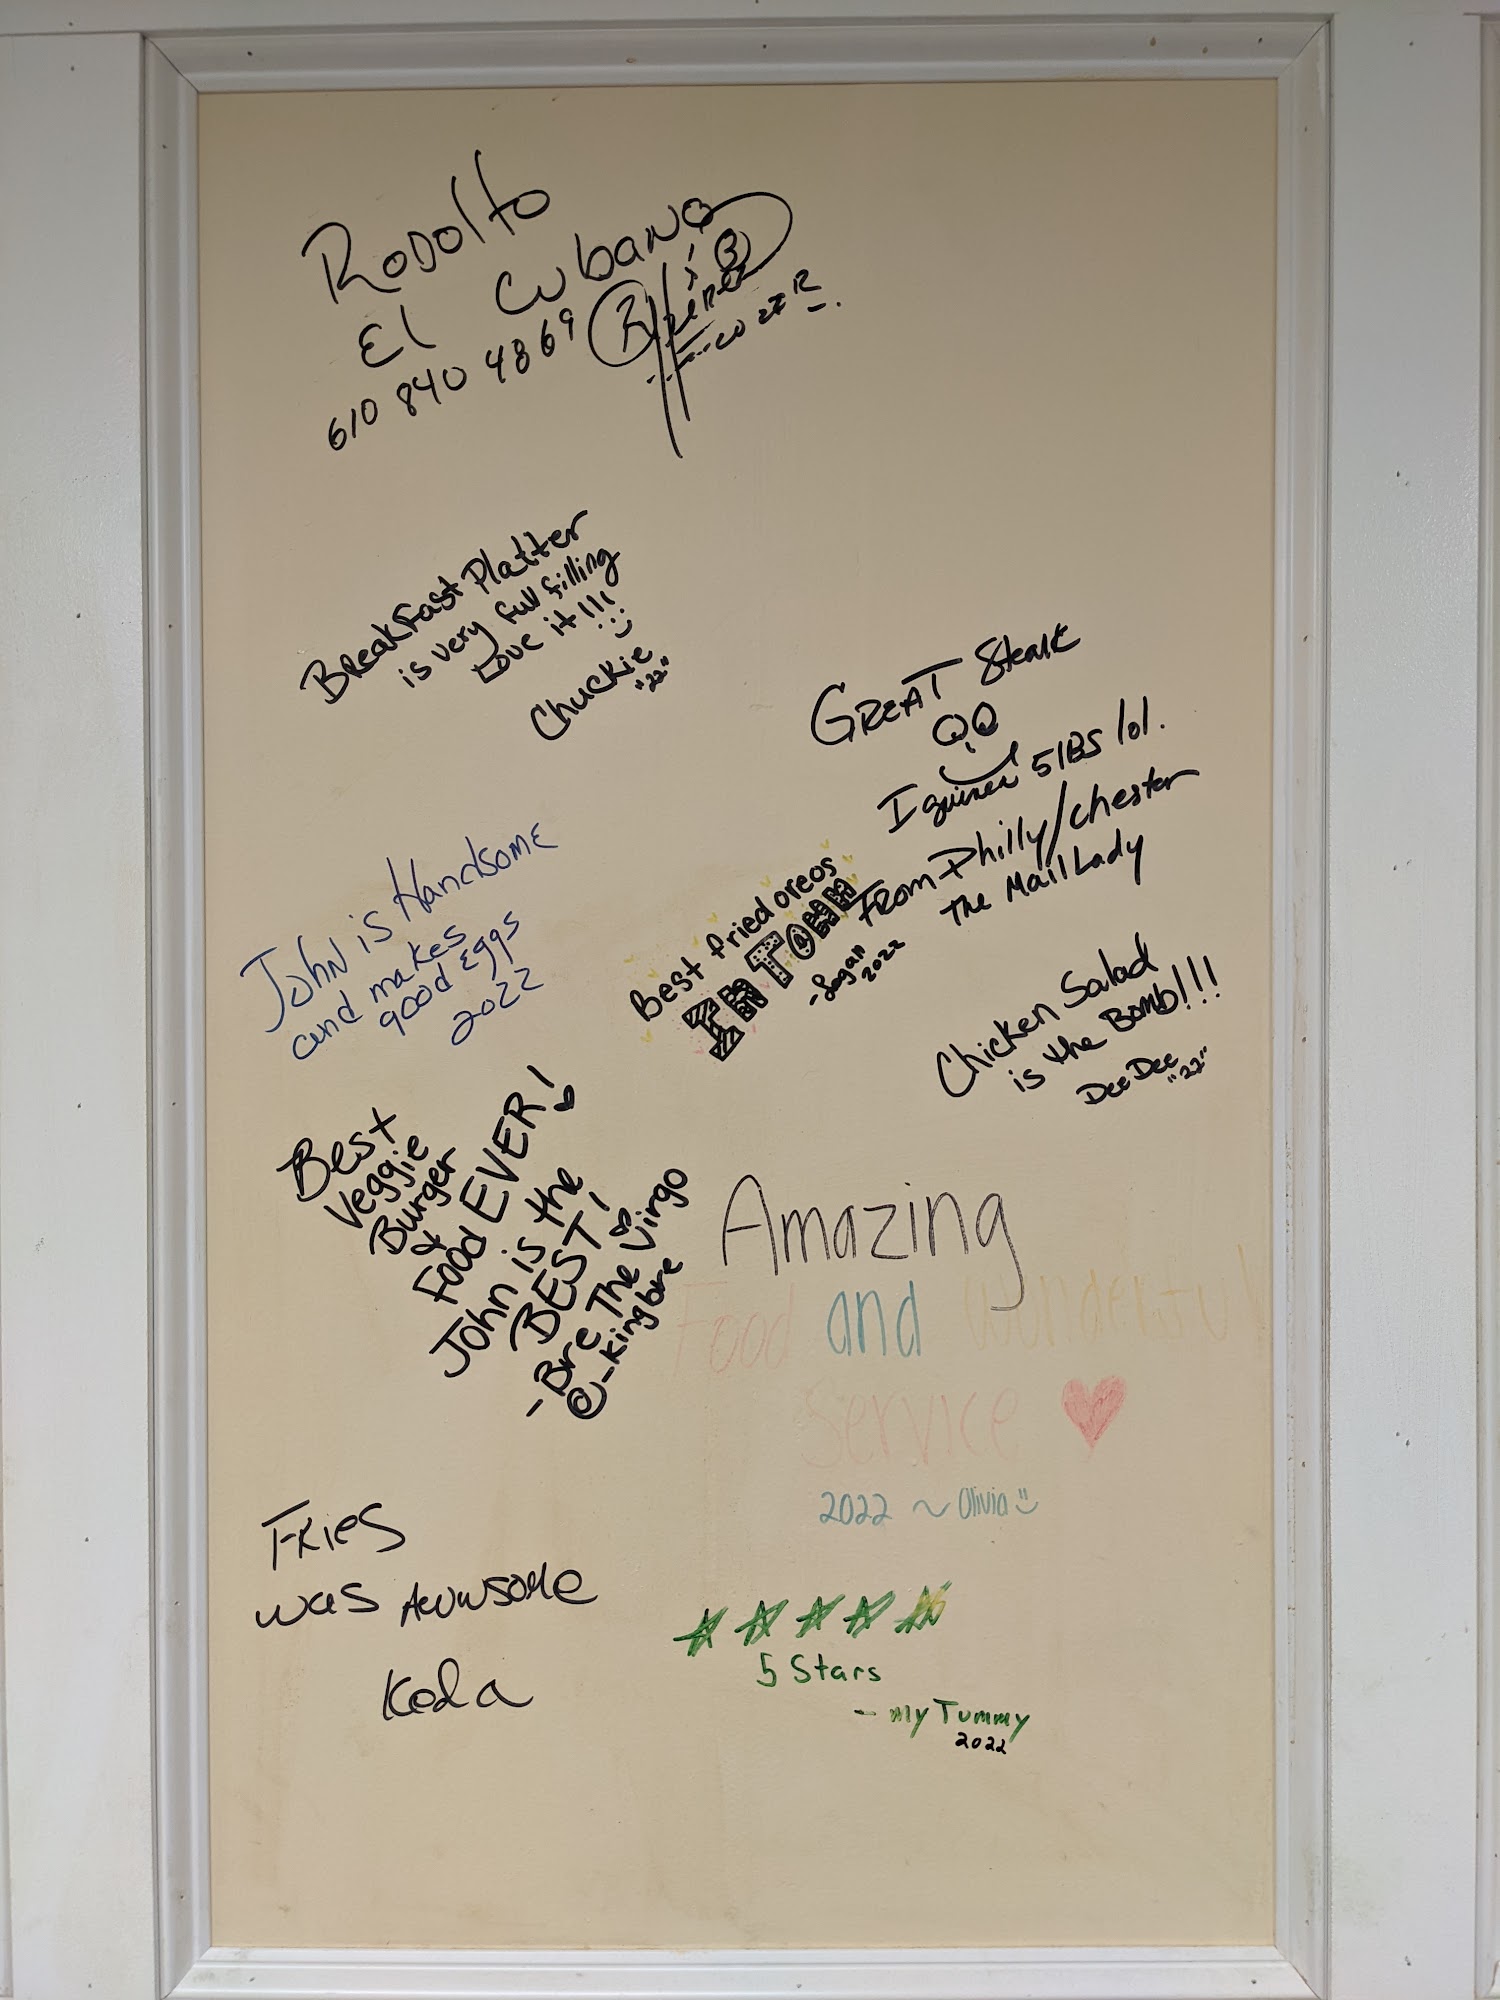 Rodolfo
El Cubano
610 840 4869
BreakFast Platter
is very full filling
Love it!!!
Chuckie
"22"
GREAT Steak
I gained 5lBS lol.
From Philly/Chester
the Mail Lady
John is Handsome
and makes
good Eggs
2022
Best fried oreos
IN TOWN
-Logan
2022
Chicken Salad
is the Bomb!!!
DeeDee "22"
Best
Veggie
Burger
&
Food EVER!
John is the
BEST!
- Bre The Virgo
@_kingbre
Amazing
Food and Wonderful
Service
2022 ~ Olivia
Fries
was Awwsome
5 Stars
- My Tummy
2022